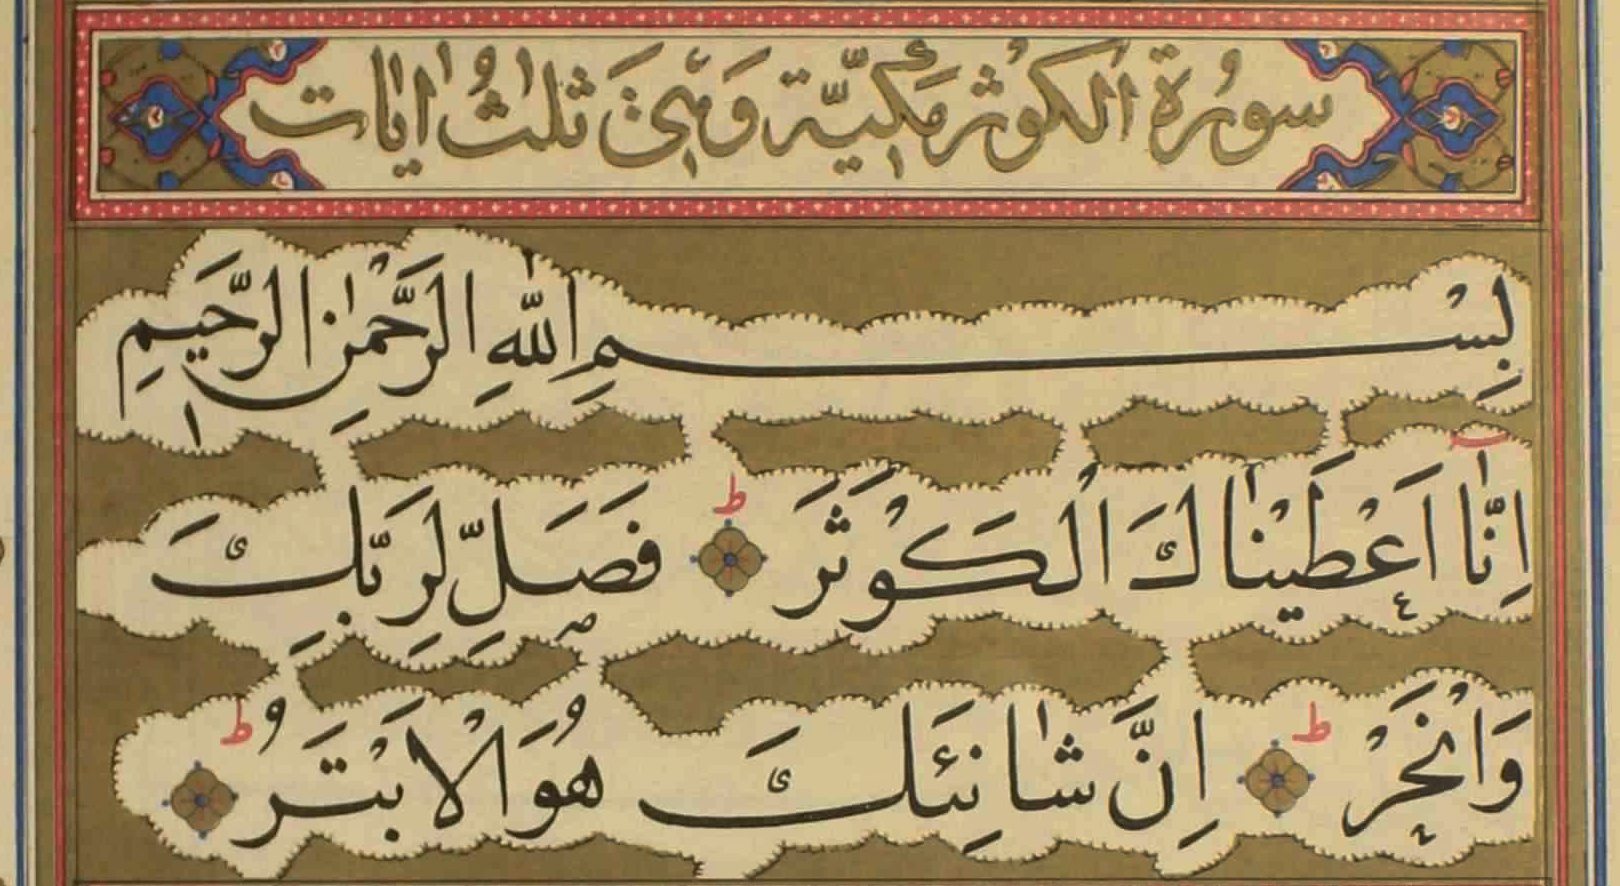 سُورَةُ الْكَوْثَرِ مَكِّيَّة وَهِيَ ثَلٰثُ اٰيَات
بِسْمِ اللّٰهِ الرَّحْمٰنِ الرَّحِيمِ
اِنَّٓا اَعْطَيْنَاكَ الْكَوْثَرَ ۝ ط فَصَلِّ لِرَبِّكَ
وَانْحَرْ ۝ ط اِنَّ شَانِئَكَ هُوَ الْاَبْتَرُ ۝ ط